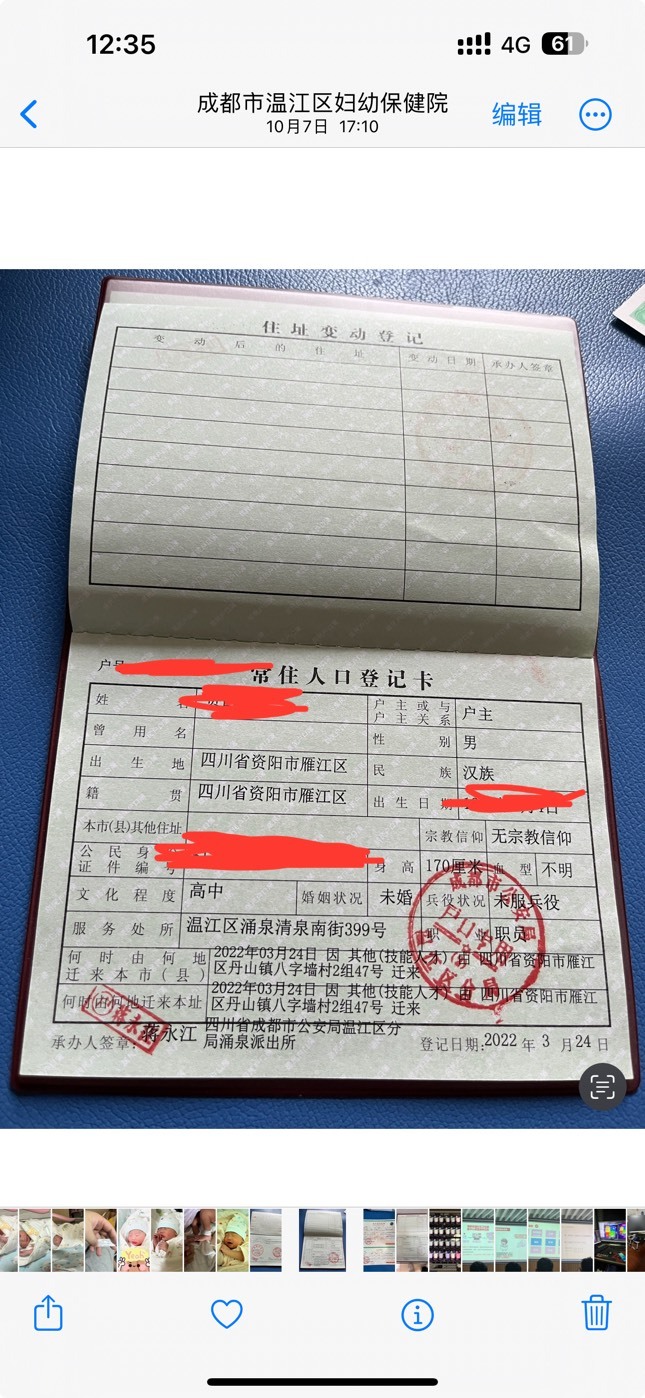 12:35
4G
61
成都市温江区妇幼保健院
编辑
10月7日 17:10
住址变动登记
变动后的住址 变动日期 承办人签章
户号
常住人口登记卡
姓名 户主或与户主关系 户主
曾用名 性别 男
出生地 四川省资阳市雁江区 民族 汉族
籍贯 四川省资阳市雁江区 出生日期
本市(县)其他住址 宗教信仰 无宗教信仰
公民身
证件编号 身高 170厘米 血型 不明
文化程度 高中 婚姻状况 未婚 兵役状况 未服兵役
服务处所 温江区涌泉清泉南街399号 职业 职员
何时由何地迁来本市(县) 2022年03月24日 因 其他(技能人才) 由 四川省资阳市雁江
区丹山镇八字墙村2组47号 迁来
何时由何地迁来本址 2022年03月24日 因 其他(技能人才) 由 四川省资阳市雁江
区丹山镇八字墙村2组47号 迁来
承办人签章: 蒋永江 四川省成都市公安局温江区分
局涌泉派出所
登记日期:2022年3月24日